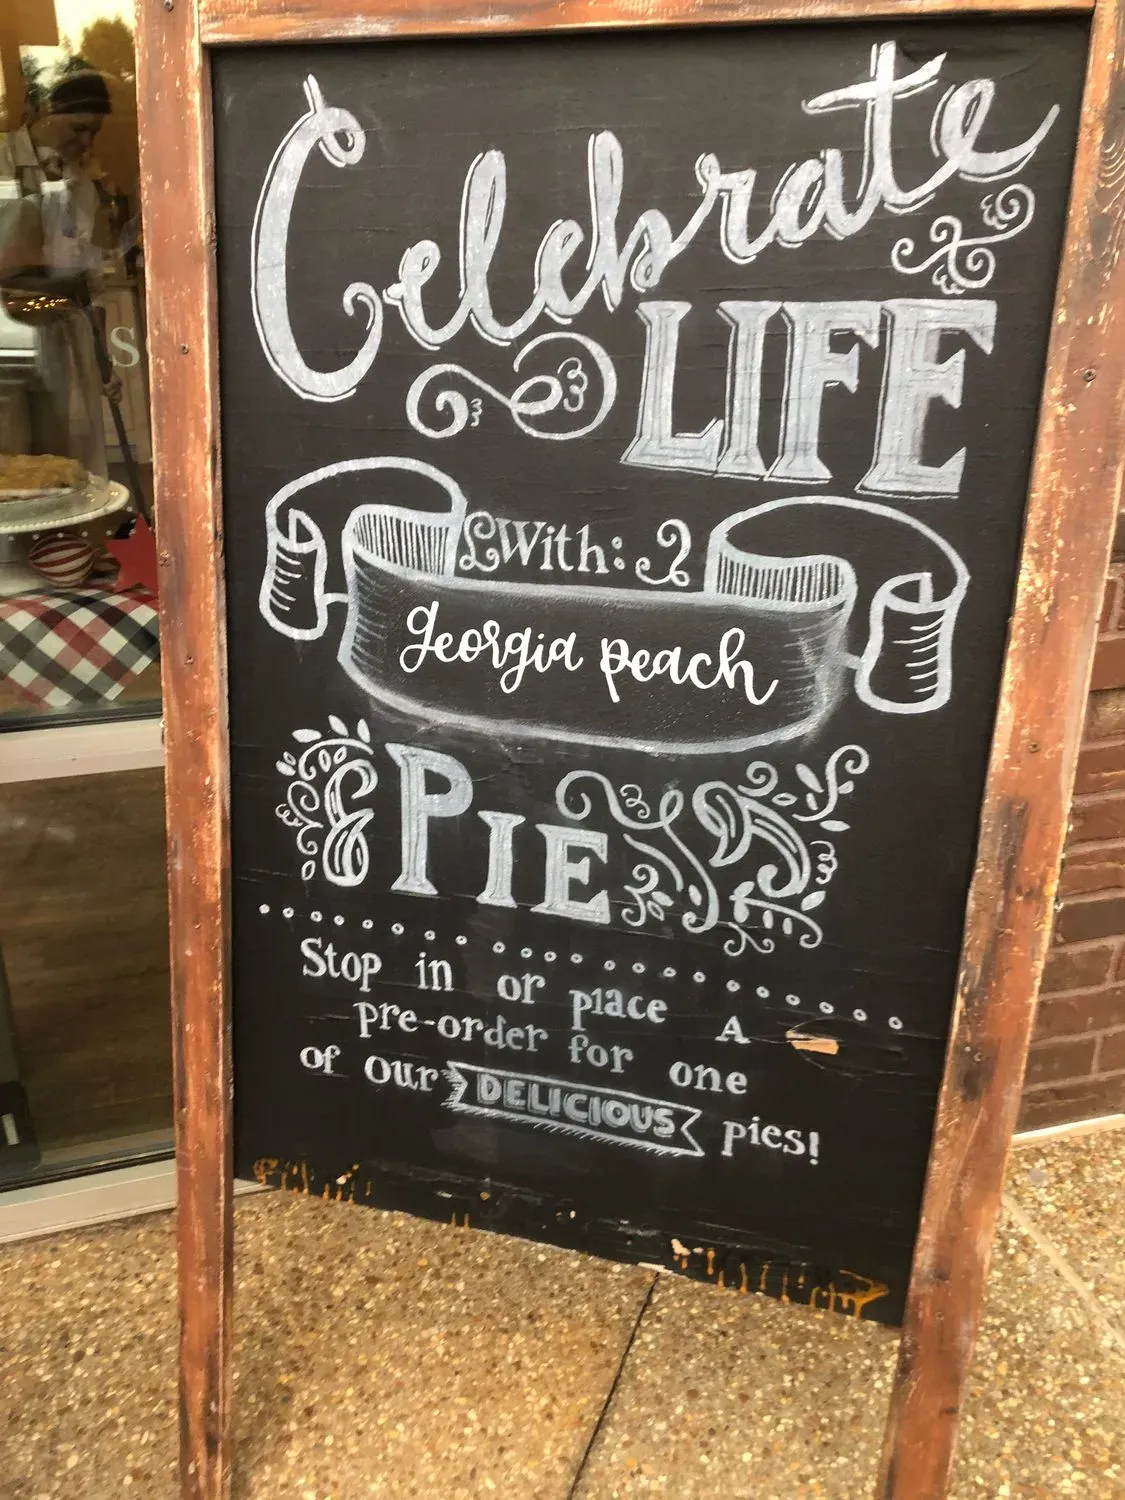 Celebrate
LIFE
With:
georgia peach
PIE
Stop in or place A
pre-order for one
of our DELICIOUS pies!
S